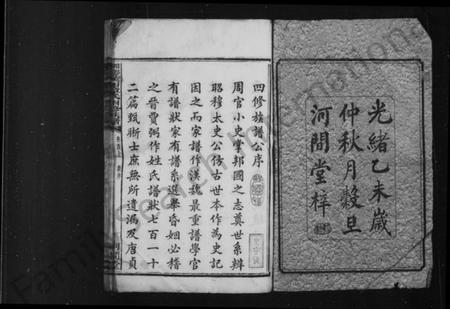 光緒乙未歲
仲秋月穀旦
河間堂梓
四修族譜公序
周官小史掌邦國之志奠世系辨
昭穆太史公倣古世本作為史記
因之而家譜作漢魏最重譜學官
有譜狀家有譜系選舉昏姻必稽
之晉賈弼作姓氏譜狀七百一十
二篇甄析士庶無所遺漏及唐貞
FamilySearch International